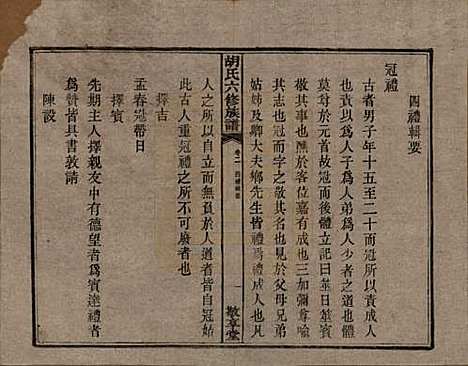 四禮輯要
冠禮
古者男子年十五至二十而冠所以責成人
以責為人子為人弟為人少者之道也體
莫尊於元首故冠而後體立曰筮日筮賓
敬其事也醮於客位嘉有成也三加彌尊喻
其志也冠而字之敬其名也於父母兄弟
姑姊及卿大夫鄉先生皆禮為禮成人也凡
胡氏六修族譜
卷二 四禮輯要
一
敬享堂
人之所以能自立而無負於人道者皆自冠始
此古人重冠禮而不可廢者也
擇吉
孟春冠帶日
擇賓
先期主人擇親友中有德望者為賓達禮者
為贊皆具書敦請
陳設